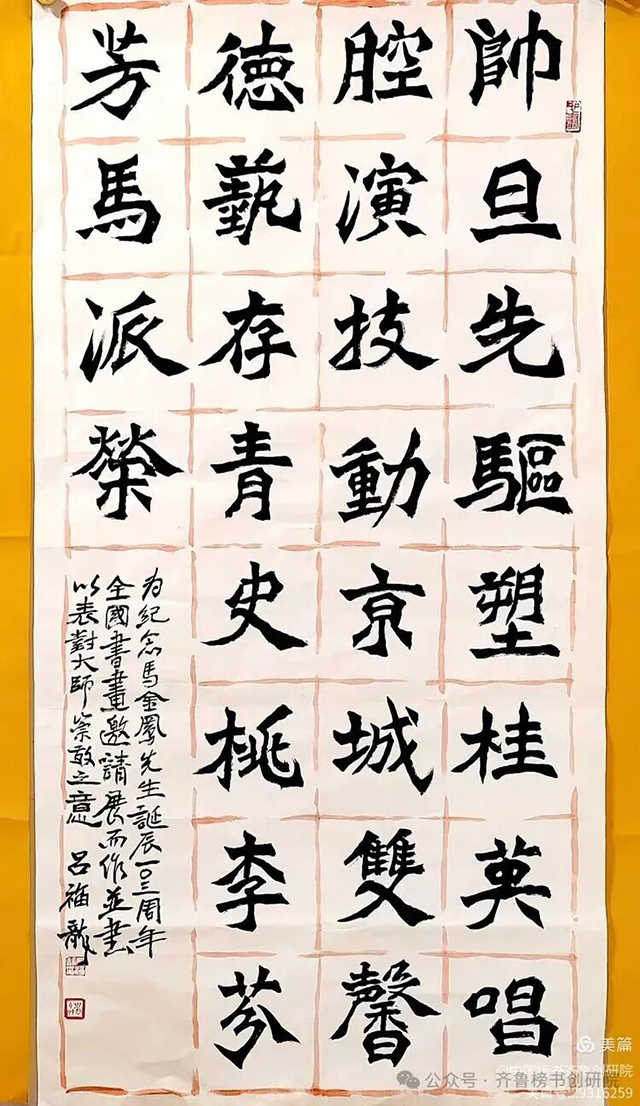 帥旦先驅塑桂英唱
腔演技動京城雙馨
德藝存青史桃李芬
芳馬派榮
为纪念馬金鳳先生誕辰一0三周年
全國書畫邀請展而作並書
以表對大師崇敬之意 吕福龍
美篇
公众号·齐鲁榜书创研院